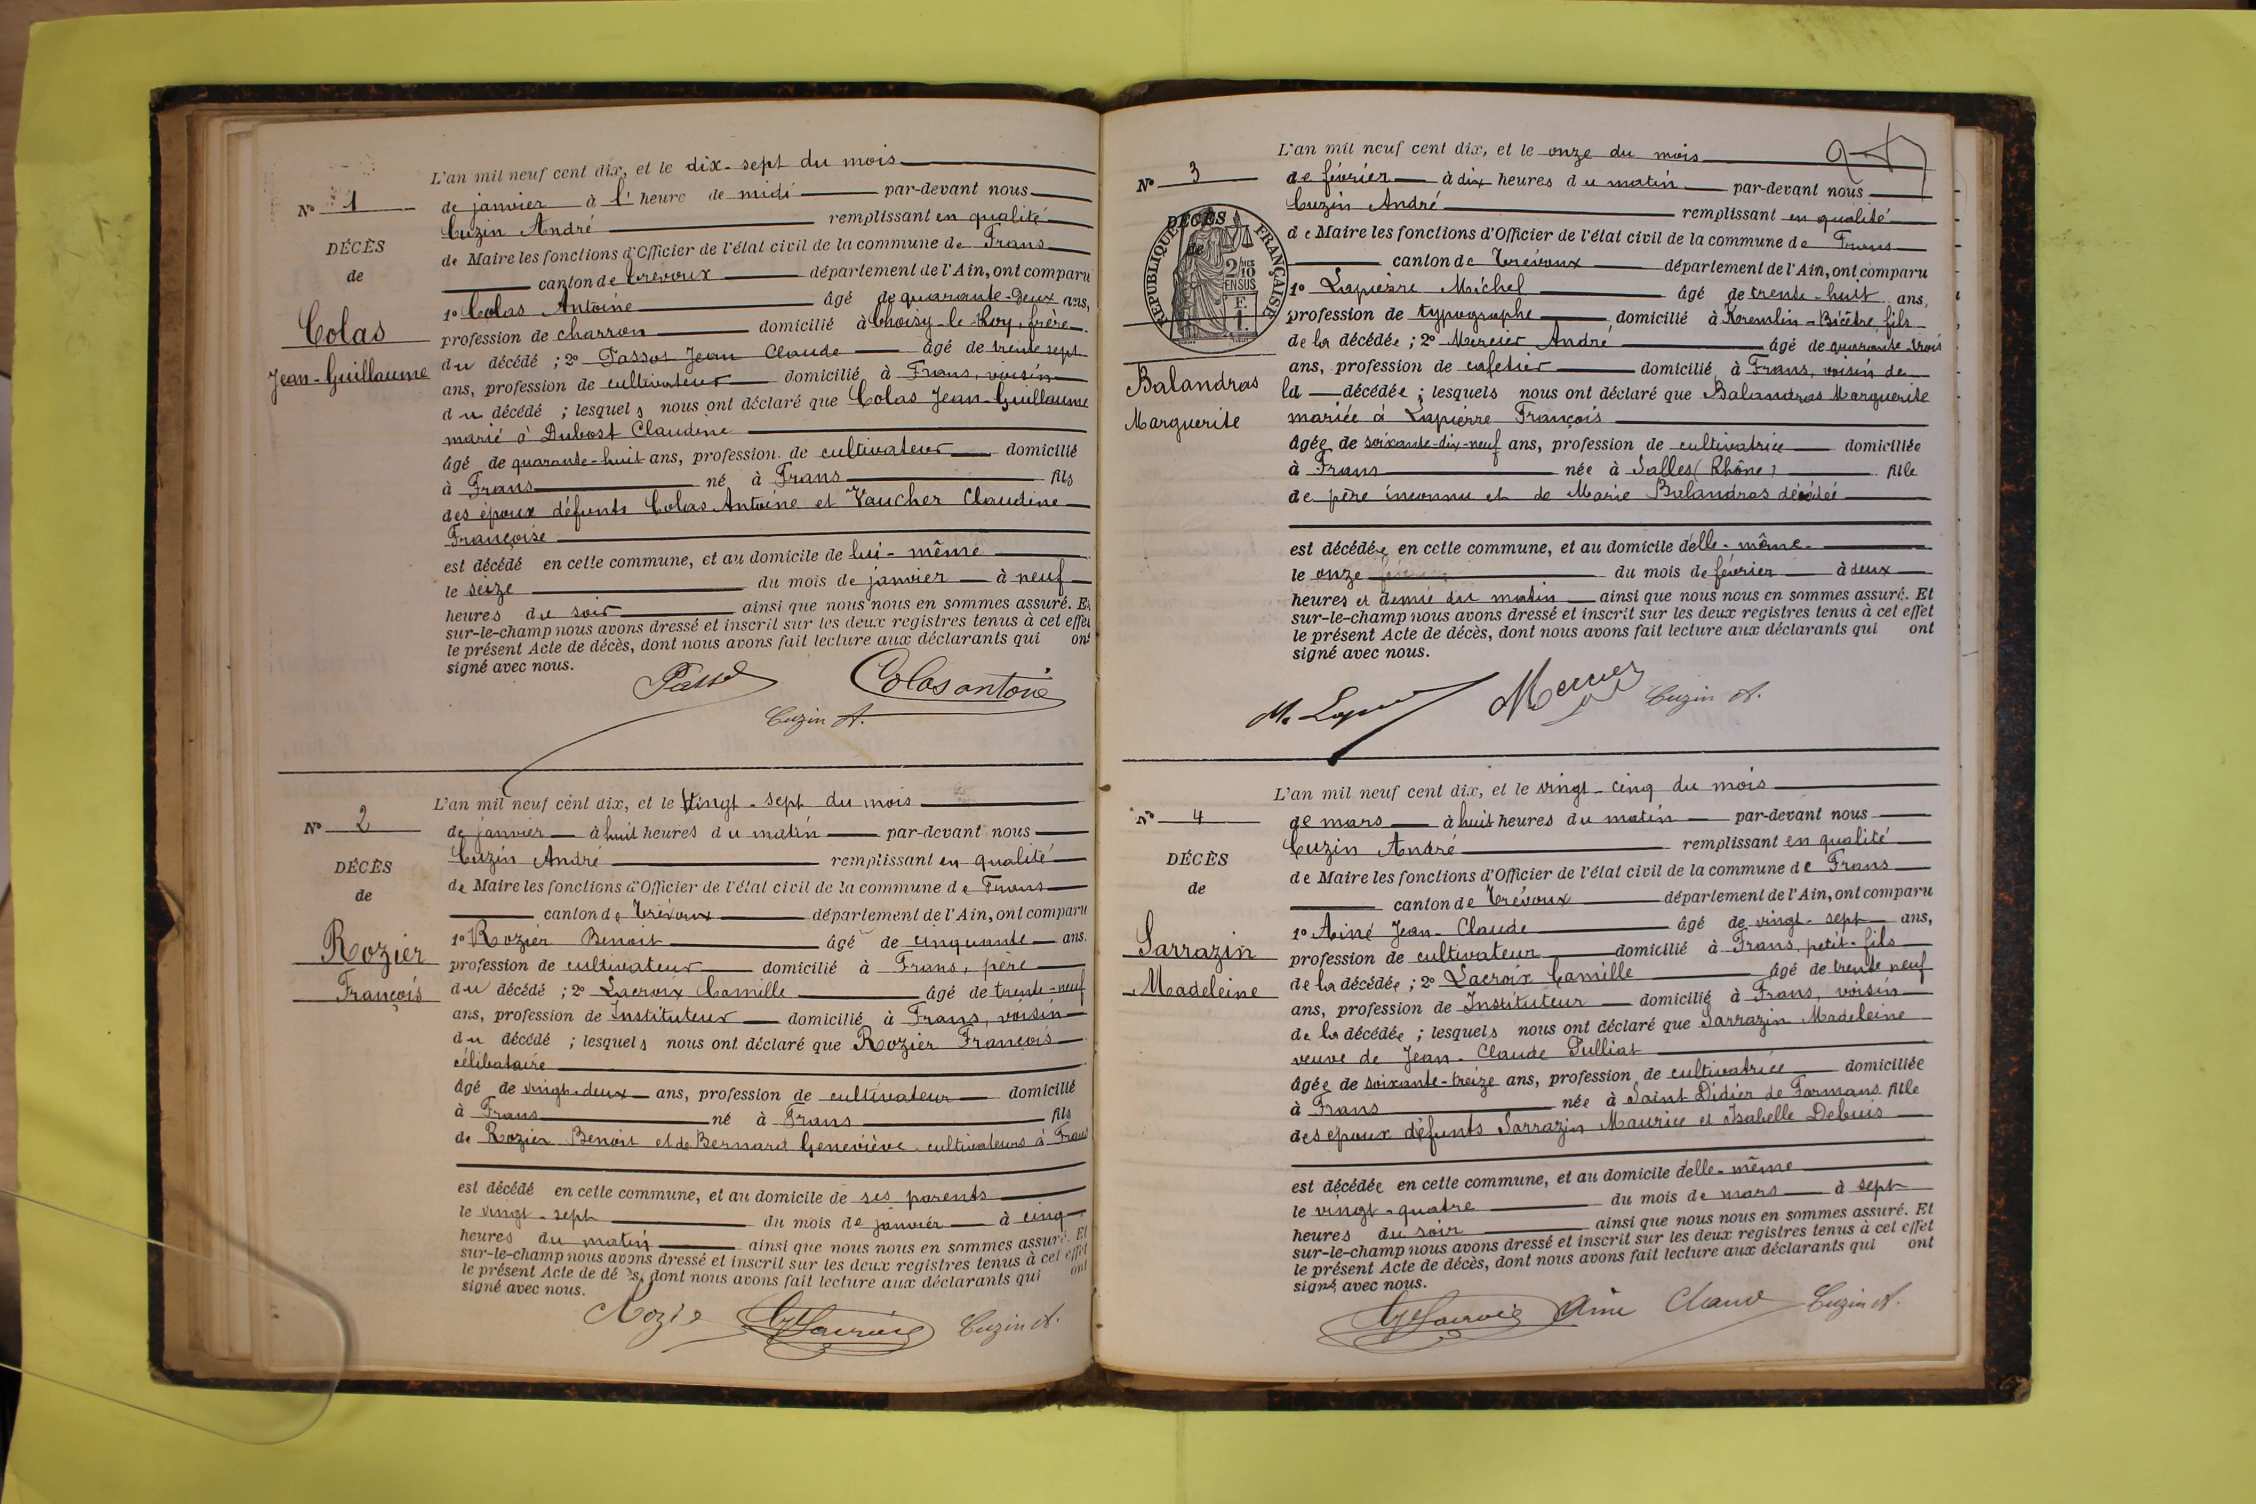 N° 1
DÉCÈS
de
Colas
Jean-Guillaume
L'an mil neuf cent dix, et le dix-sept du mois
de janvier à l'heure de midi par-devant nous
Cuzin André remplissant en qualité
de Maire les fonctions d'Officier de l'état civil de la commune de Frans
canton de Trévoux département de l'Ain, ont comparu
1° Colas Antoine âgé de quarante-deux ans,
profession de charron domicilié à Choisy-le-Roy, frère
du décédé ; 2° Passot Jean Claude âgé de trente sept
ans, profession de cultivateur domicilié à Frans, voisin
du décédé ; lesquels nous ont déclaré que Colas Jean-Guillaume
marié à Dubost Claudine
âgé de quarante-huit ans, profession de cultivateur domicilié
à Frans né à Frans fils
des époux défunts Colas Antoine et Vaucher Claudine
Françoise
est décédé en cette commune, et au domicile de lui-même
le seize du mois de janvier à neuf
heures du soir ainsi que nous nous en sommes assuré. Et
sur-le-champ nous avons dressé et inscrit sur les deux registres tenus à cet effet
le présent Acte de décès, dont nous avons fait lecture aux déclarants qui ont
signé avec nous.
Colas antoine
Cuzin A.
N° 2
DÉCÈS
de
Rozier
François
L'an mil neuf cent dix, et le vingt-sept du mois
de janvier à huit heures du matin par-devant nous
Cuzin André remplissant en qualité
de Maire les fonctions d'Officier de l'état civil de la commune de Frans
canton de Trévoux département de l'Ain, ont comparu
1° Rozier Benoit âgé de cinquante ans.
profession de cultivateur domicilié à Frans, père
du décédé ; 2° Lacroix Camille âgé de trente-neuf
ans, profession de Instituteur domicilié à Frans, voisin
du décédé ; lesquels nous ont déclaré que Rozier François
célibataire
âgé de vingt-deux ans, profession de cultivateur domicilié
à Frans né à Frans fils
de Rozier Benoit et de Bernard Geneviève cultivateurs à Frans
est décédé en cette commune, et au domicile de ses parents
le vingt-sept du mois de janvier à cinq
heures du matin ainsi que nous nous en sommes assuré. Et
sur-le-champ nous avons dressé et inscrit sur les deux registres tenus à cet effet
le présent Acte de décès, dont nous avons fait lecture aux déclarants qui ont
signé avec nous.
Rozie Lacroix Cuzin A.
N° 3
DÉCÈS
de
RÉPUBLIQUE FRANÇAISE
2/10 EN SUS
Balandras
Marguerite
L'an mil neuf cent dix, et le onze du mois
de février à dix heures du matin par-devant nous
Cuzin André remplissant en qualité
de Maire les fonctions d'Officier de l'état civil de la commune de Frans
canton de Trévoux département de l'Ain, ont comparu
1° Lapierre Michel âgé de trente-huit ans,
profession de typographe domicilié à Kremlin-Bicêtre, fils
de la décédée ; 2° Mercier André âgé de quarante-trois
ans, profession de cafetier domicilié à Frans, voisin de
la décédée ; lesquels nous ont déclaré que Balandras Marguerite
mariée à Lapierre François
âgée de soixante-dix-neuf ans, profession de cultivatrice domiciliée
à Frans née à Salles (Rhône) fille
de père inconnu et de Marie Balandras décédée
est décédée en cette commune, et au domicile d'elle-même
le onze du mois de février à deux
heures et demie du matin ainsi que nous nous en sommes assuré. Et
sur-le-champ nous avons dressé et inscrit sur les deux registres tenus à cet effet
le présent Acte de décès, dont nous avons fait lecture aux déclarants qui ont
signé avec nous.
Mercier Cuzin A.
N° 4
DÉCÈS
de
Sarrazin
Madeleine
L'an mil neuf cent dix, et le vingt-cinq du mois
de mars à huit heures du matin par-devant nous
Cuzin André remplissant en qualité
de Maire les fonctions d'Officier de l'état civil de la commune de Frans
canton de Trévoux département de l'Ain, ont comparu
1° Ainé Jean-Claude âgé de vingt-sept ans,
profession de cultivateur domicilié à Frans, petit-fils
de la décédée ; 2° Lacroix Camille âgé de trente neuf
ans, profession de Instituteur domicilié à Frans, voisin
de la décédée ; lesquels nous ont déclaré que Sarrazin Madeleine
veuve de Jean-Claude Pulliat
âgée de soixante-treize ans, profession de cultivatrice domiciliée
à Frans née à Saint Didier de Formans fille
des époux défunts Sarrazin Maurice et Isabelle Debuis
est décédée en cette commune, et au domicile d'elle-même
le vingt-quatre du mois de mars à sept
heures du soir ainsi que nous nous en sommes assuré. Et
sur-le-champ nous avons dressé et inscrit sur les deux registres tenus à cet effet
le présent Acte de décès, dont nous avons fait lecture aux déclarants qui ont
signé avec nous.
Lacroix Cuzin A.